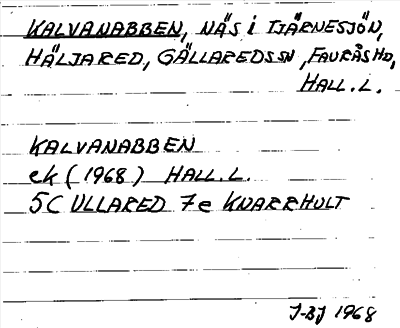 KALVANABBEN, NÄS i TJÄRNESJÖN,
HÄLJARED, GÄLLAREDSSN, FAURÅS HD,
HALL.L.
KALVANABBEN
ek (1968) HALL.L.
5C ULLARED 7e KNARRHULT
J-BJ 1968